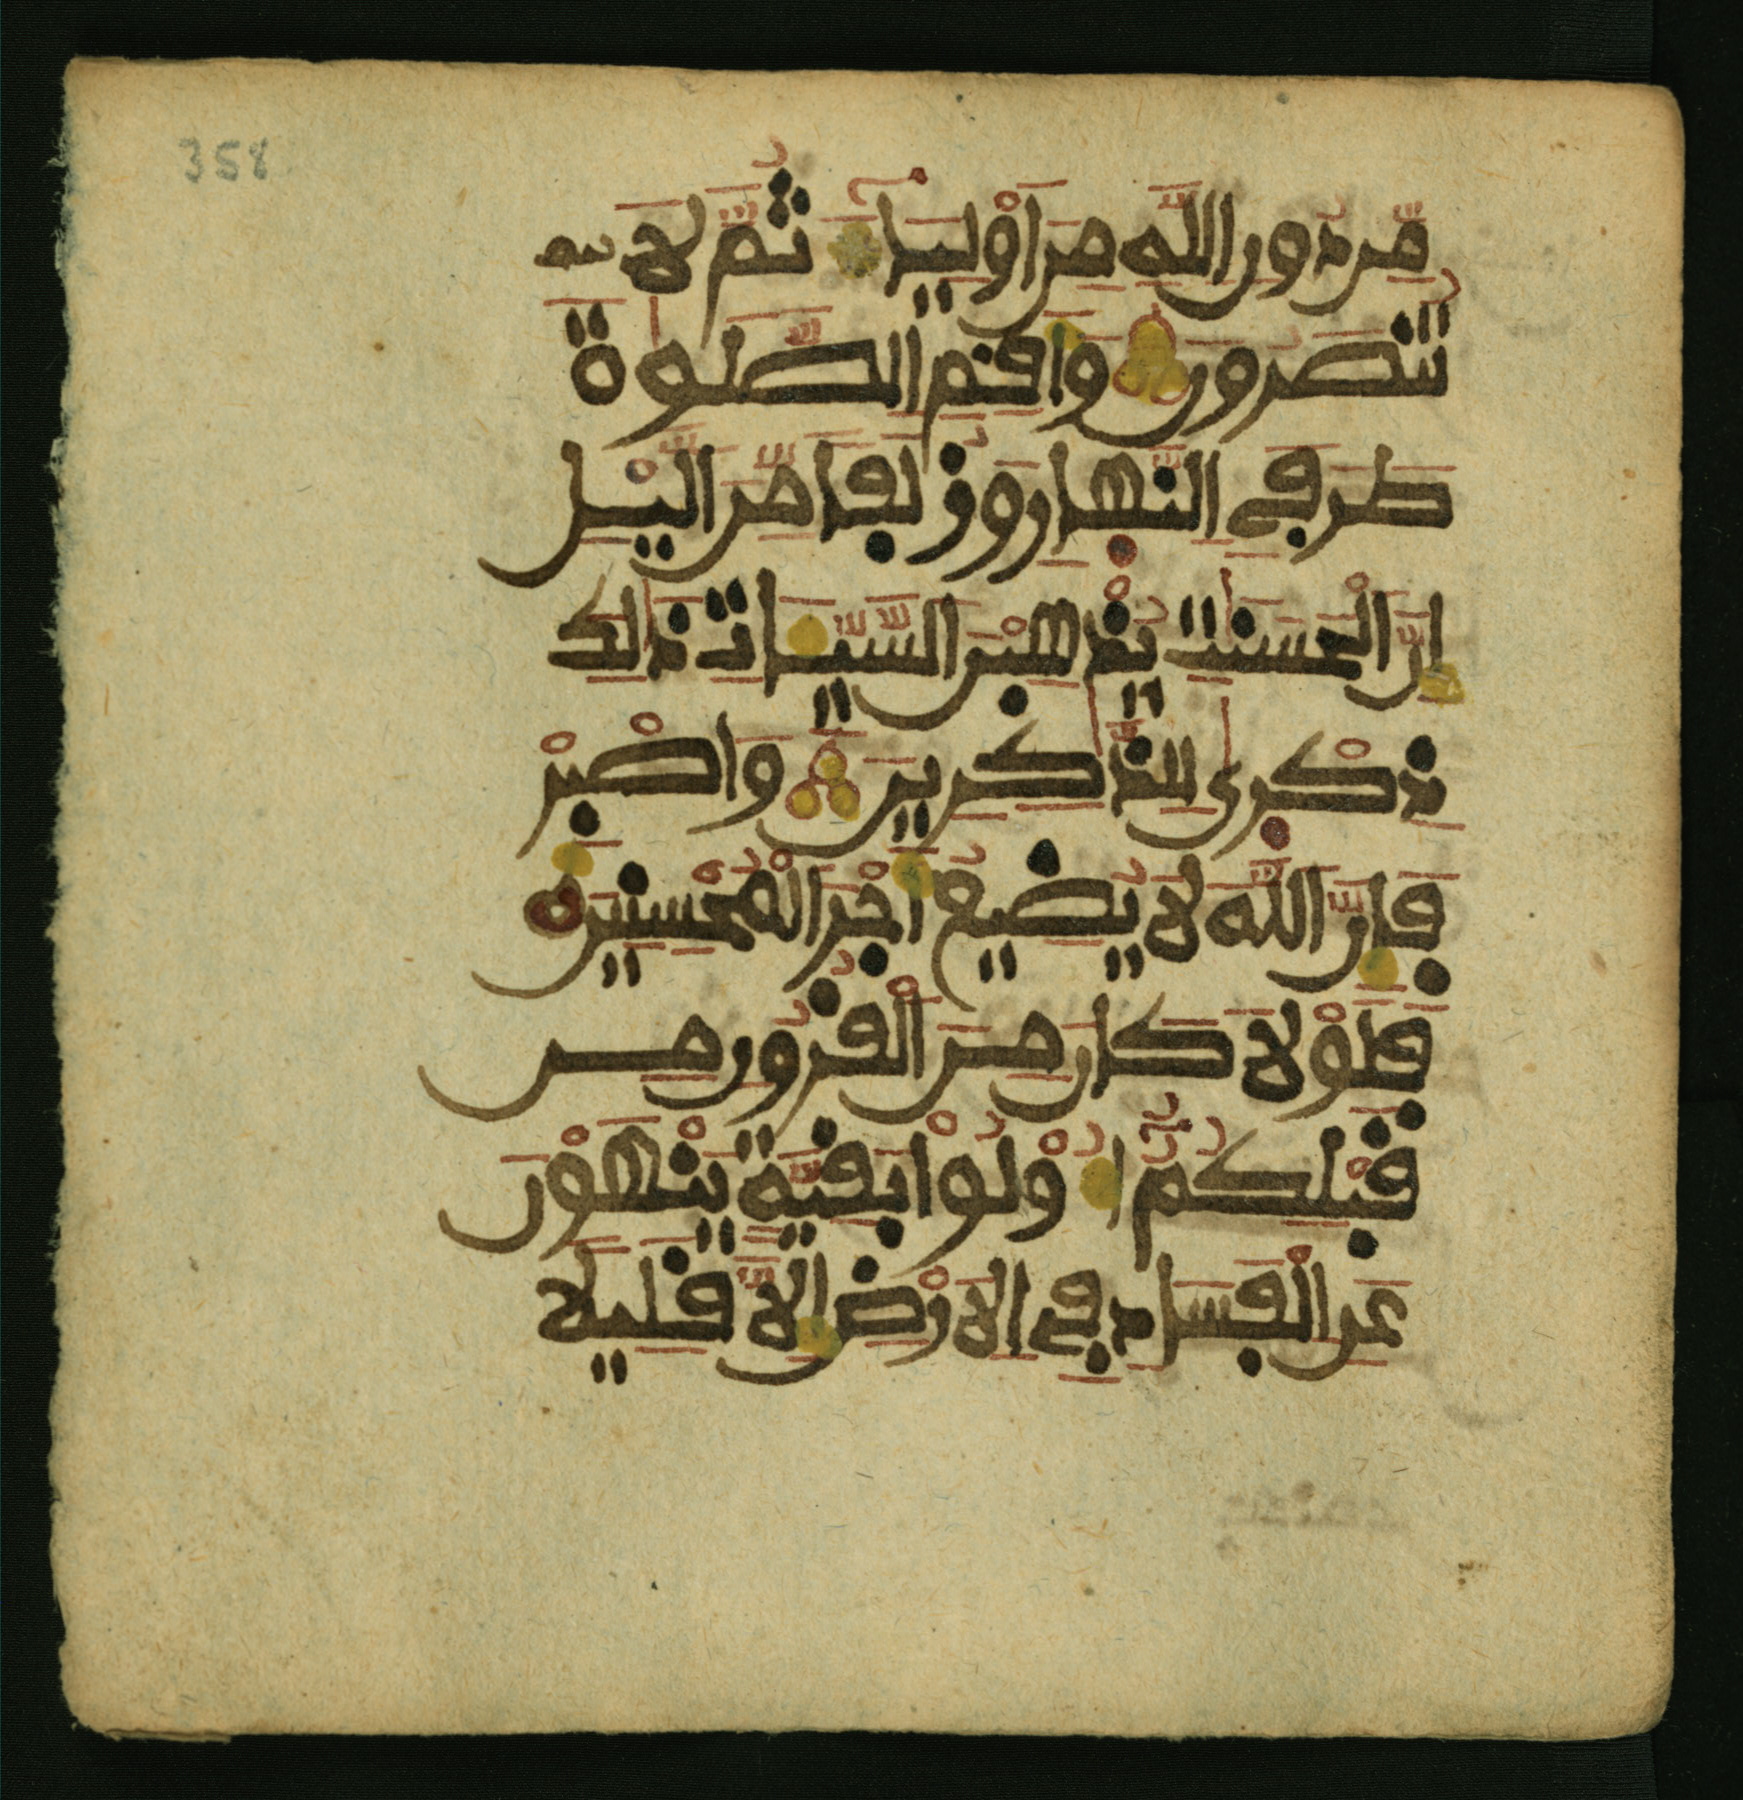 358
مِّن دُونِ اللَّهِ مِنَ اوْلِيَآءَ ثُمَّ لَا
تُنصَرُونَ وَأَقِمِ الصَّلَوٰةَ
طَرَفَيِ النَّهَارِ وَزُلَفًا مِّنَ الَّيْلِ
إِنَّ الْحَسَنَٰتِ يُذْهِبْنَ السَّيِّـَٔاتِ ذَٰلِكَ
ذِكْرَىٰ لِلذَّٰكِرِينَ وَاصْبِرْ
فَإِنَّ اللَّهَ لَا يُضِيعُ أَجْرَ الْمُحْسِنِينَ
فَلَوْلَا كَانَ مِنَ الْقُرُونِ مِن
قَبْلِكُمُ أُوْلُوْا بَقِيَّةٍ يَنْهَوْنَ
عَنِ الْفَسَادِ فِي الَارْضِ إِلَّا قَلِيلًا